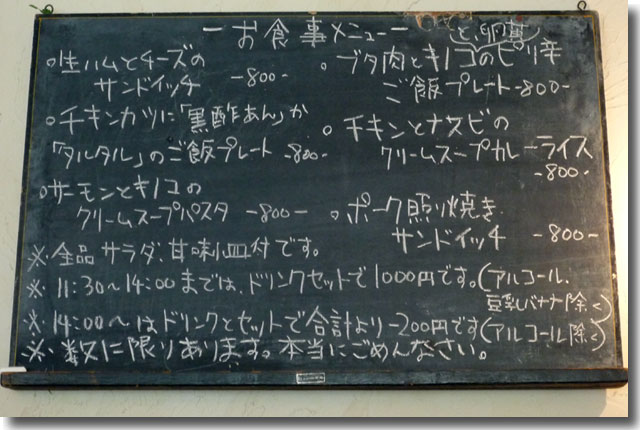 ーお食事メニューー
と、卵黄
○生ハムとチーズの
サンドイッチ -800-
○チキンカツに「黒酢あん」か
「タルタル」のご飯プレート -800-
○サーモンとキノコの
クリームスープパスタ -800-
○ブタ肉とキノコのピリ辛
ご飯プレート -800-
○チキンとナスビの
クリームスープカレーライス
-800-
○ポーク照り焼き
サンドイッチ -800-
※全品サラダ、甘味小皿付です。
※11:30~14:00までは、ドリンクセットで1000円です。(アルコール、
豆乳バナナ除く)
※14:00~はドリンクとセットで合計より-200円です(アルコール除く)
※数に限りあります。本当にごめんなさい。